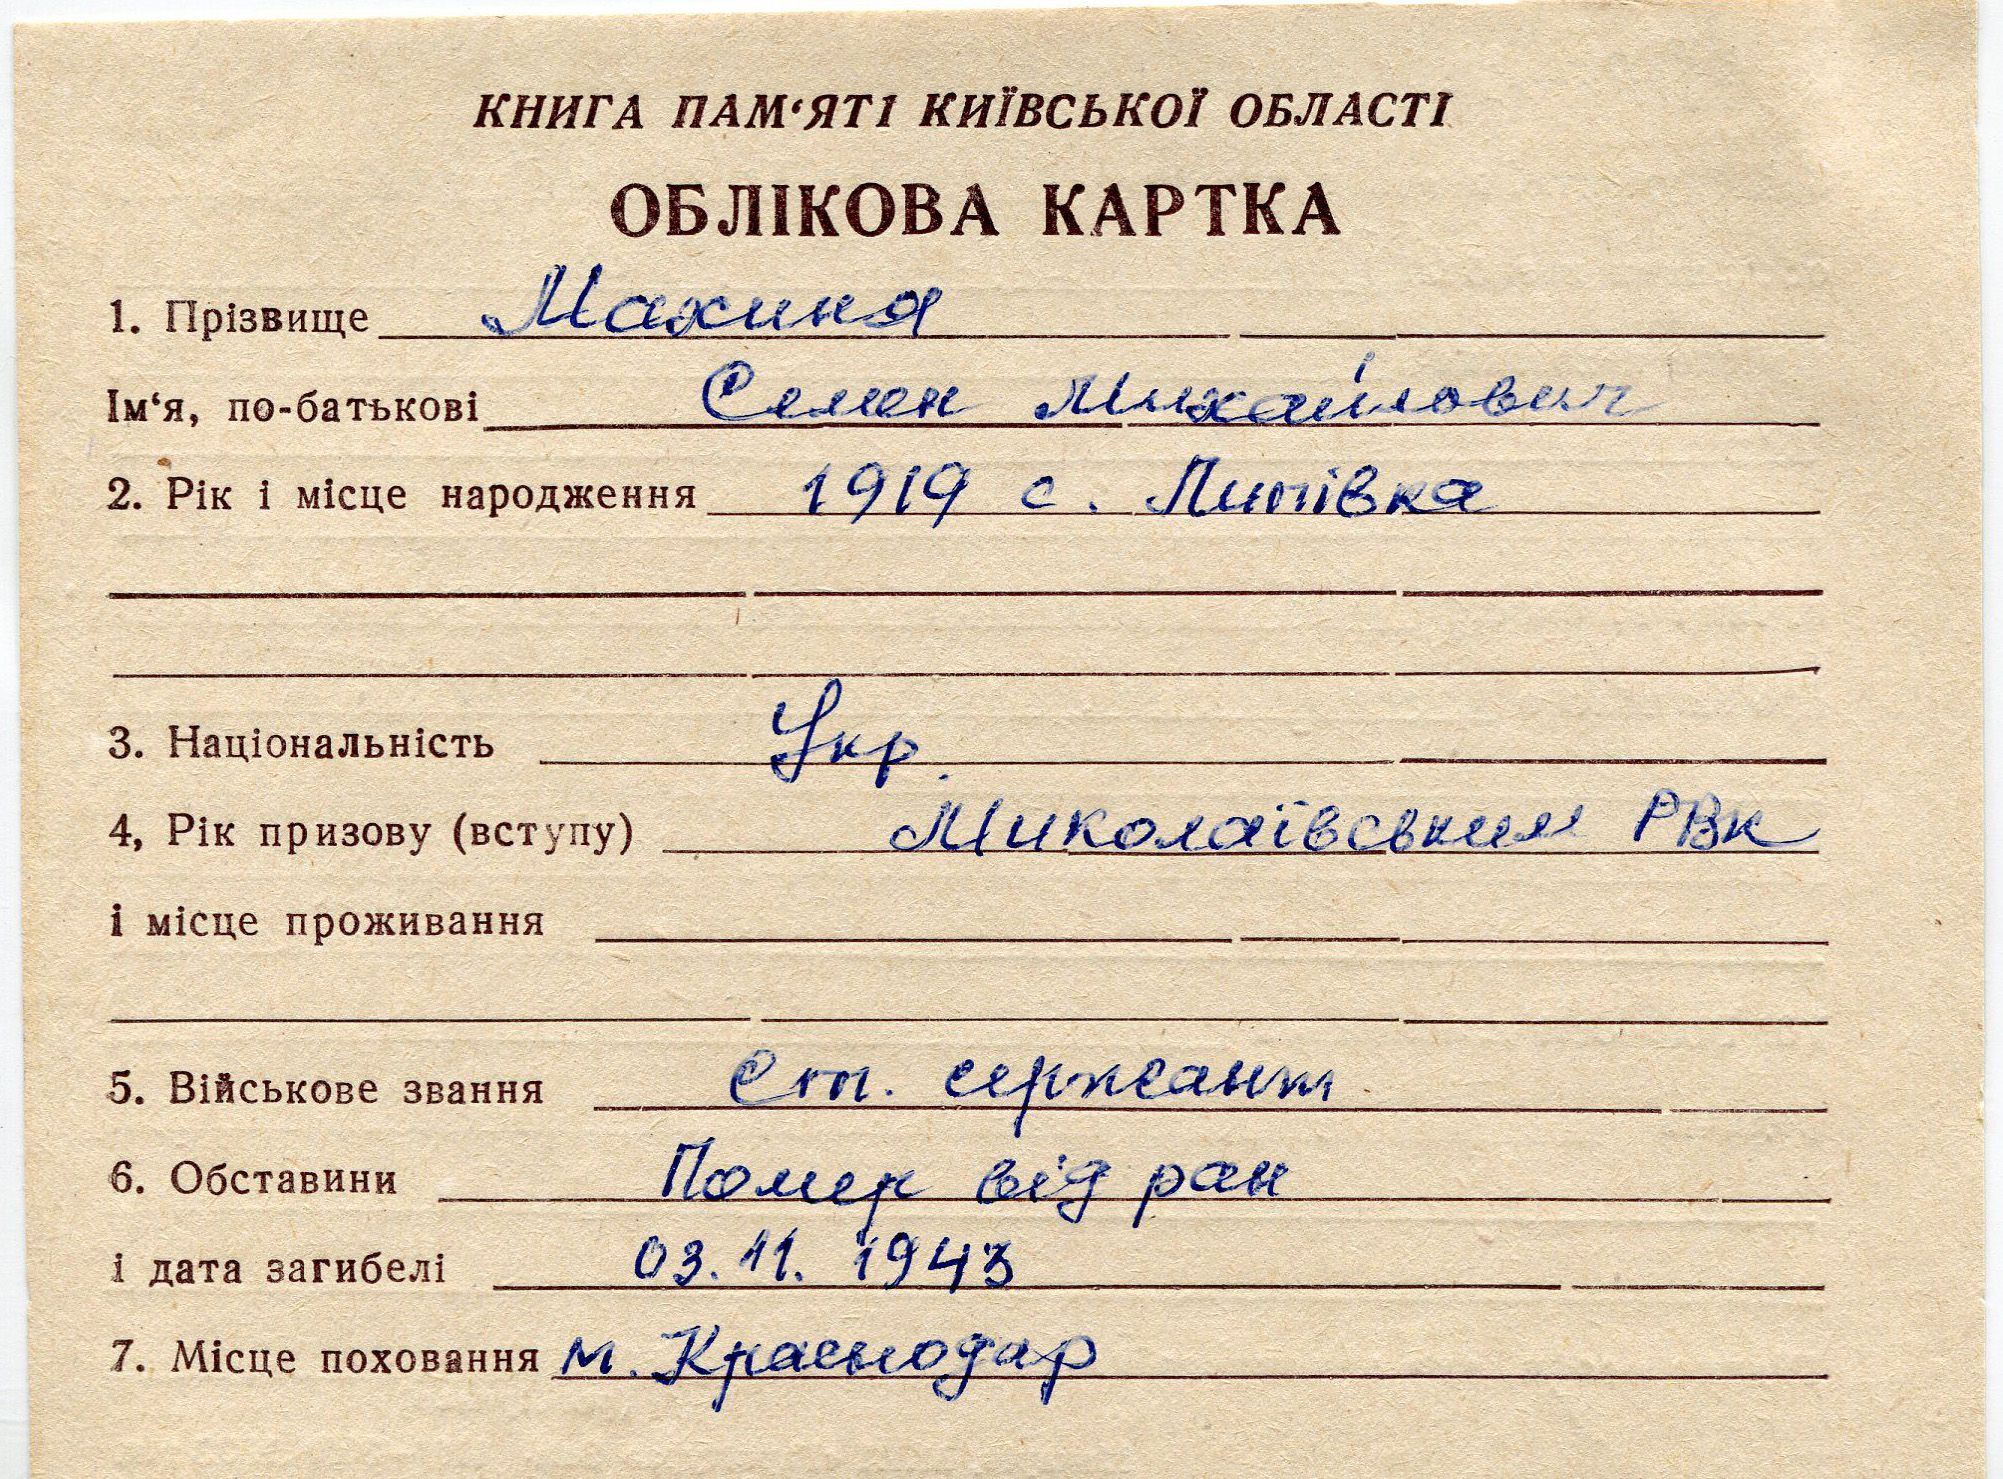 КНИГА ПАМ‘ЯТІ КИЇВСЬКОЇ ОБЛАСТІ
ОБЛІКОВА КАРТКА
1. Прізвище Махиня
Ім‘я, по-батькові Семен Михайлович
2. Рік і місце народження 1919 с. Липівка
3. Національність Укр.
4, Рік призову (вступу) Миколаївським РВК
і місце проживання
5. Військове звання Ст. сержант
6. Обставини Помер від ран
і дата загибелі 03.11.1943
7. Місце поховання м. Краснодар